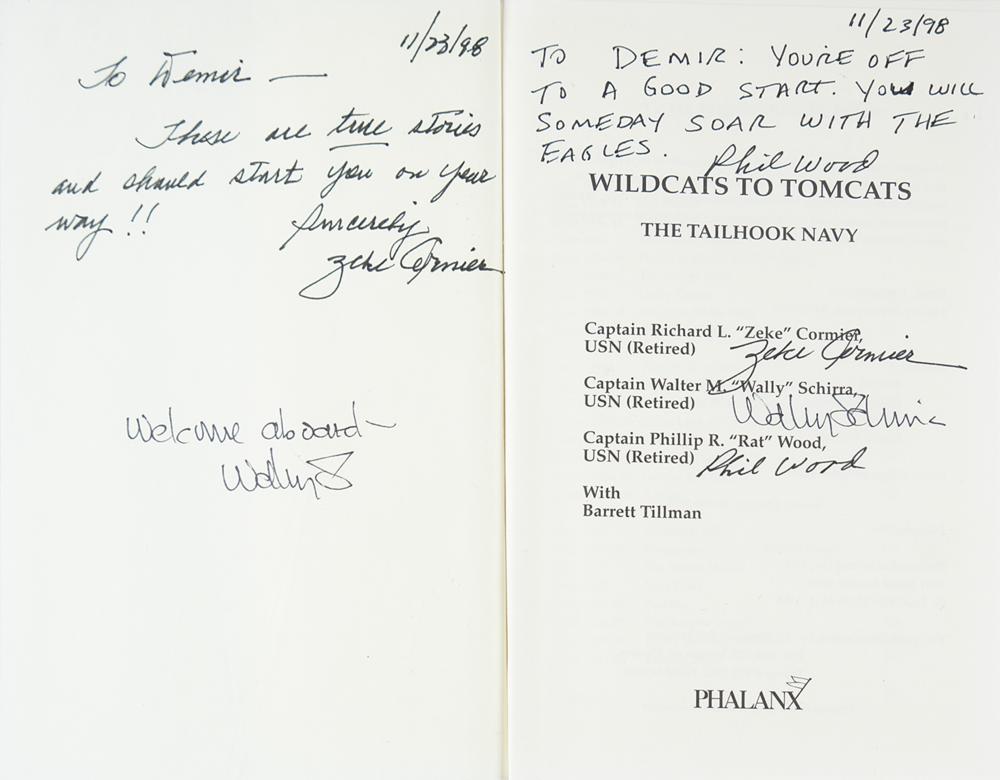 11/23/98
To Demir —
These are true stories
and should start you on your
way!!
Sincerely
Zeke Cormier
Welcome aboard –
Wally S
11/23/98
TO DEMIR: YOU'RE OFF
TO A GOOD START. YOU WILL
SOMEDAY SOAR WITH THE
EAGLES.
Phil Wood
WILDCATS TO TOMCATS
THE TAILHOOK NAVY
Captain Richard L. "Zeke" Cormier,
USN (Retired)
Zeke Cormier
Captain Walter M. "Wally" Schirra,
USN (Retired)
Wally Schirra
Captain Phillip R. "Rat" Wood,
USN (Retired)
Phil Wood
With
Barrett Tillman
PHALANX